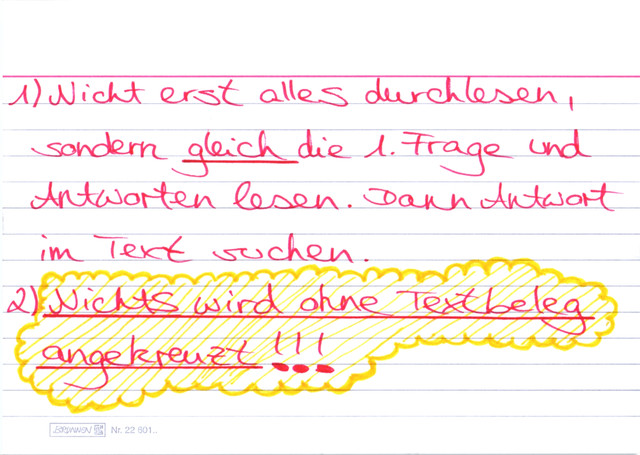 1) Nicht erst alles durchlesen,
sondern gleich die 1. Frage und
Antworten lesen. Dann Antwort
im Text suchen.
2) Nichts wird ohne Textbeleg
angekreuzt !!!
BRUNNEN Nr. 22 601..